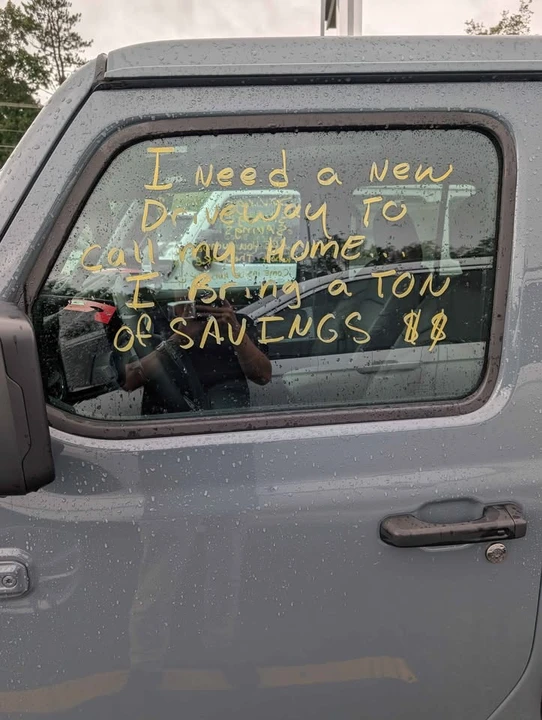 I Need a New
Driveway To
Call my HOME...
I Bring a TON
Of SAVINGS $$